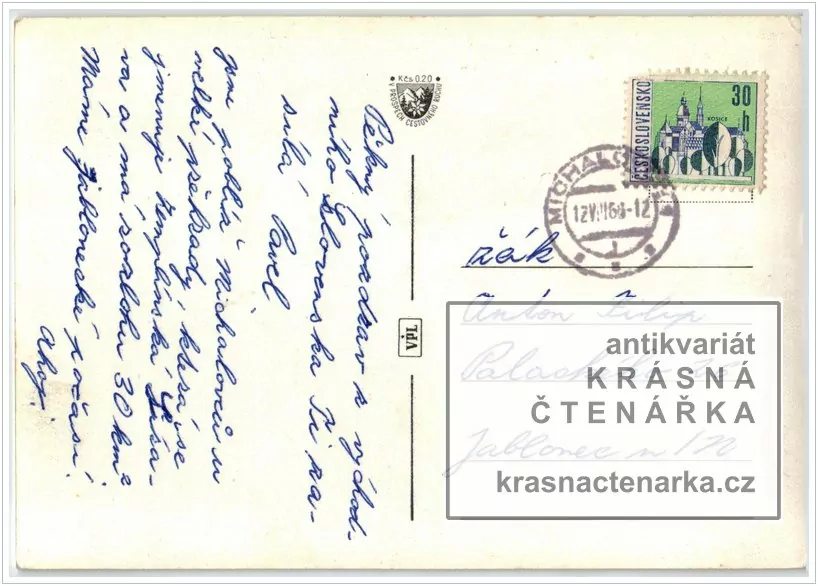 Pěkný pozdrav z východ-
ního Slovenska Ti za-
sílá Pavel
Jsme poblíž Michalovců u
velké přehrady, která se
jmenuje Zemplínská Šíra-
va a má rozlohu 30 km²
Máme Jablonecké počasí.
Ahoj!
Kčs 0.20
V PROSPĚCH CESTOVNÉHO RUCHU
VPL
ČESKOSLOVENSKO
30 h
KOŠICE
MICHALO
1
žák
Anton Filip
Jablonec n/N
antikvariát
KRÁSNÁ
ČTENÁŘKA
krasnactenarka.cz